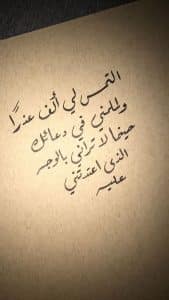 التمس لي ألف عذرًا
ولملمني في دعائك
حينما لا تراني بالوجه
الذي اعتدتني
عليه